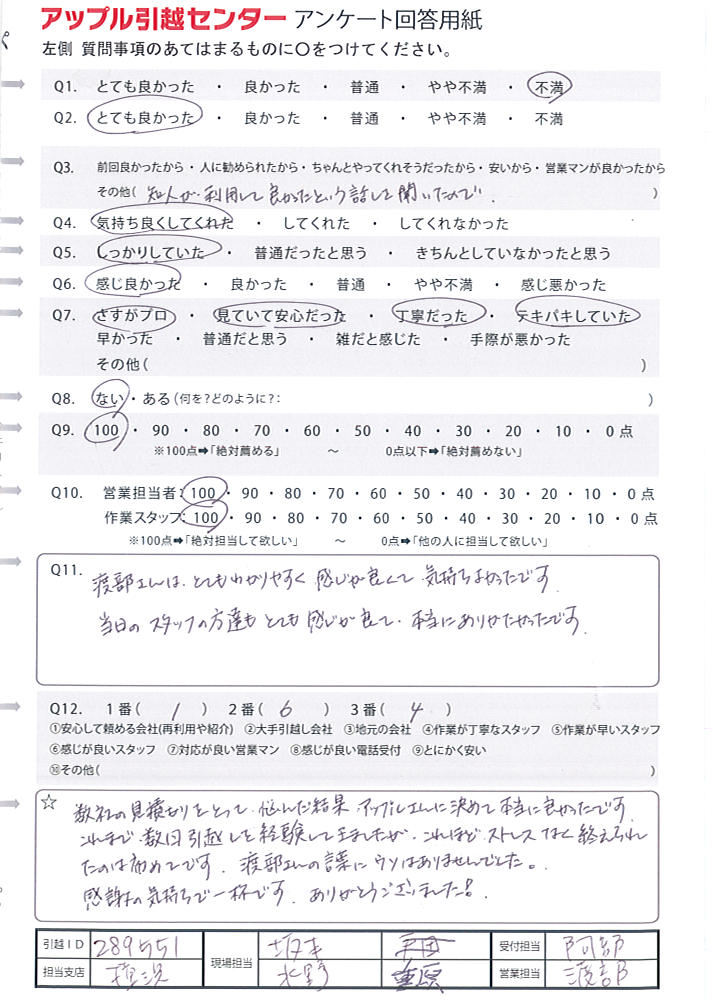 アップル引越センター アンケート回答用紙
左側 質問事項のあてはまるものに〇をつけてください。
Q1. とても良かった ・ 良かった ・ 普通 ・ やや不満 ・ 不満
Q2. とても良かった ・ 良かった ・ 普通 ・ やや不満 ・ 不満
Q3. 前回良かったから・人に勧められたから・ちゃんとやってくれそうだったから・安いから・営業マンが良かったから
その他( 知人が利用して良かったという話しを聞いたので。 )
Q4. 気持ち良くしてくれた ・ してくれた ・ してくれなかった
Q5. しっかりしていた ・ 普通だったと思う ・ きちんとしていなかったと思う
Q6. 感じ良かった ・ 良かった ・ 普通 ・ やや不満 ・ 感じ悪かった
Q7. さすがプロ ・ 見ていて安心だった ・ 丁寧だった ・ テキパキしていた
早かった ・ 普通だと思う ・ 雑だと感じた ・ 手際が悪かった
その他( )
Q8. ない・ある(何を?どのように?: )
Q9. 100 ・ 90 ・ 80 ・ 70 ・ 60 ・ 50 ・ 40 ・ 30 ・ 20 ・ 10 ・ 0点
※100点➡「絶対薦める」 〜 0点以下➡「絶対薦めない」
Q10. 営業担当者:100・90・80・70・60・50・40・30・20・10・0点
作業スタッフ:100・90・80・70・60・50・40・30・20・10・0点
※100点➡「絶対担当して欲しい」 〜 0点➡「他の人に担当して欲しい」
Q11. 渡部さんは、とてもわかりやすく感じが良くて気持ちよかったです
当日のスタッフの方達もとても感じが良て、本当にありがたかったです.
Q12. 1番( 1 ) 2番( 6 ) 3番( 4 )
①安心して頼める会社(再利用や紹介) ②大手引越し会社 ③地元の会社 ④作業が丁寧なスタッフ ⑤作業が早いスタッフ
⑥感じが良いスタッフ ⑦対応が良い営業マン ⑧感じが良い電話受付 ⑨とにかく安い
⑩その他( )
☆ 数社の見積もりをとって悩んだ結果アップルさんに決めて本当に良かったです.
これまで数回引越しを経験して来ましたが、これほどストレスなく終えられ
たのは初めてです. 渡部さんの言葉にウソはありませんでした。
感謝の気持ちで一杯です. ありがとうございました!
引越ID 289551 現場担当 坂本 受付担当 阿部
担当支店 横浜 水野 営業担当 渡部